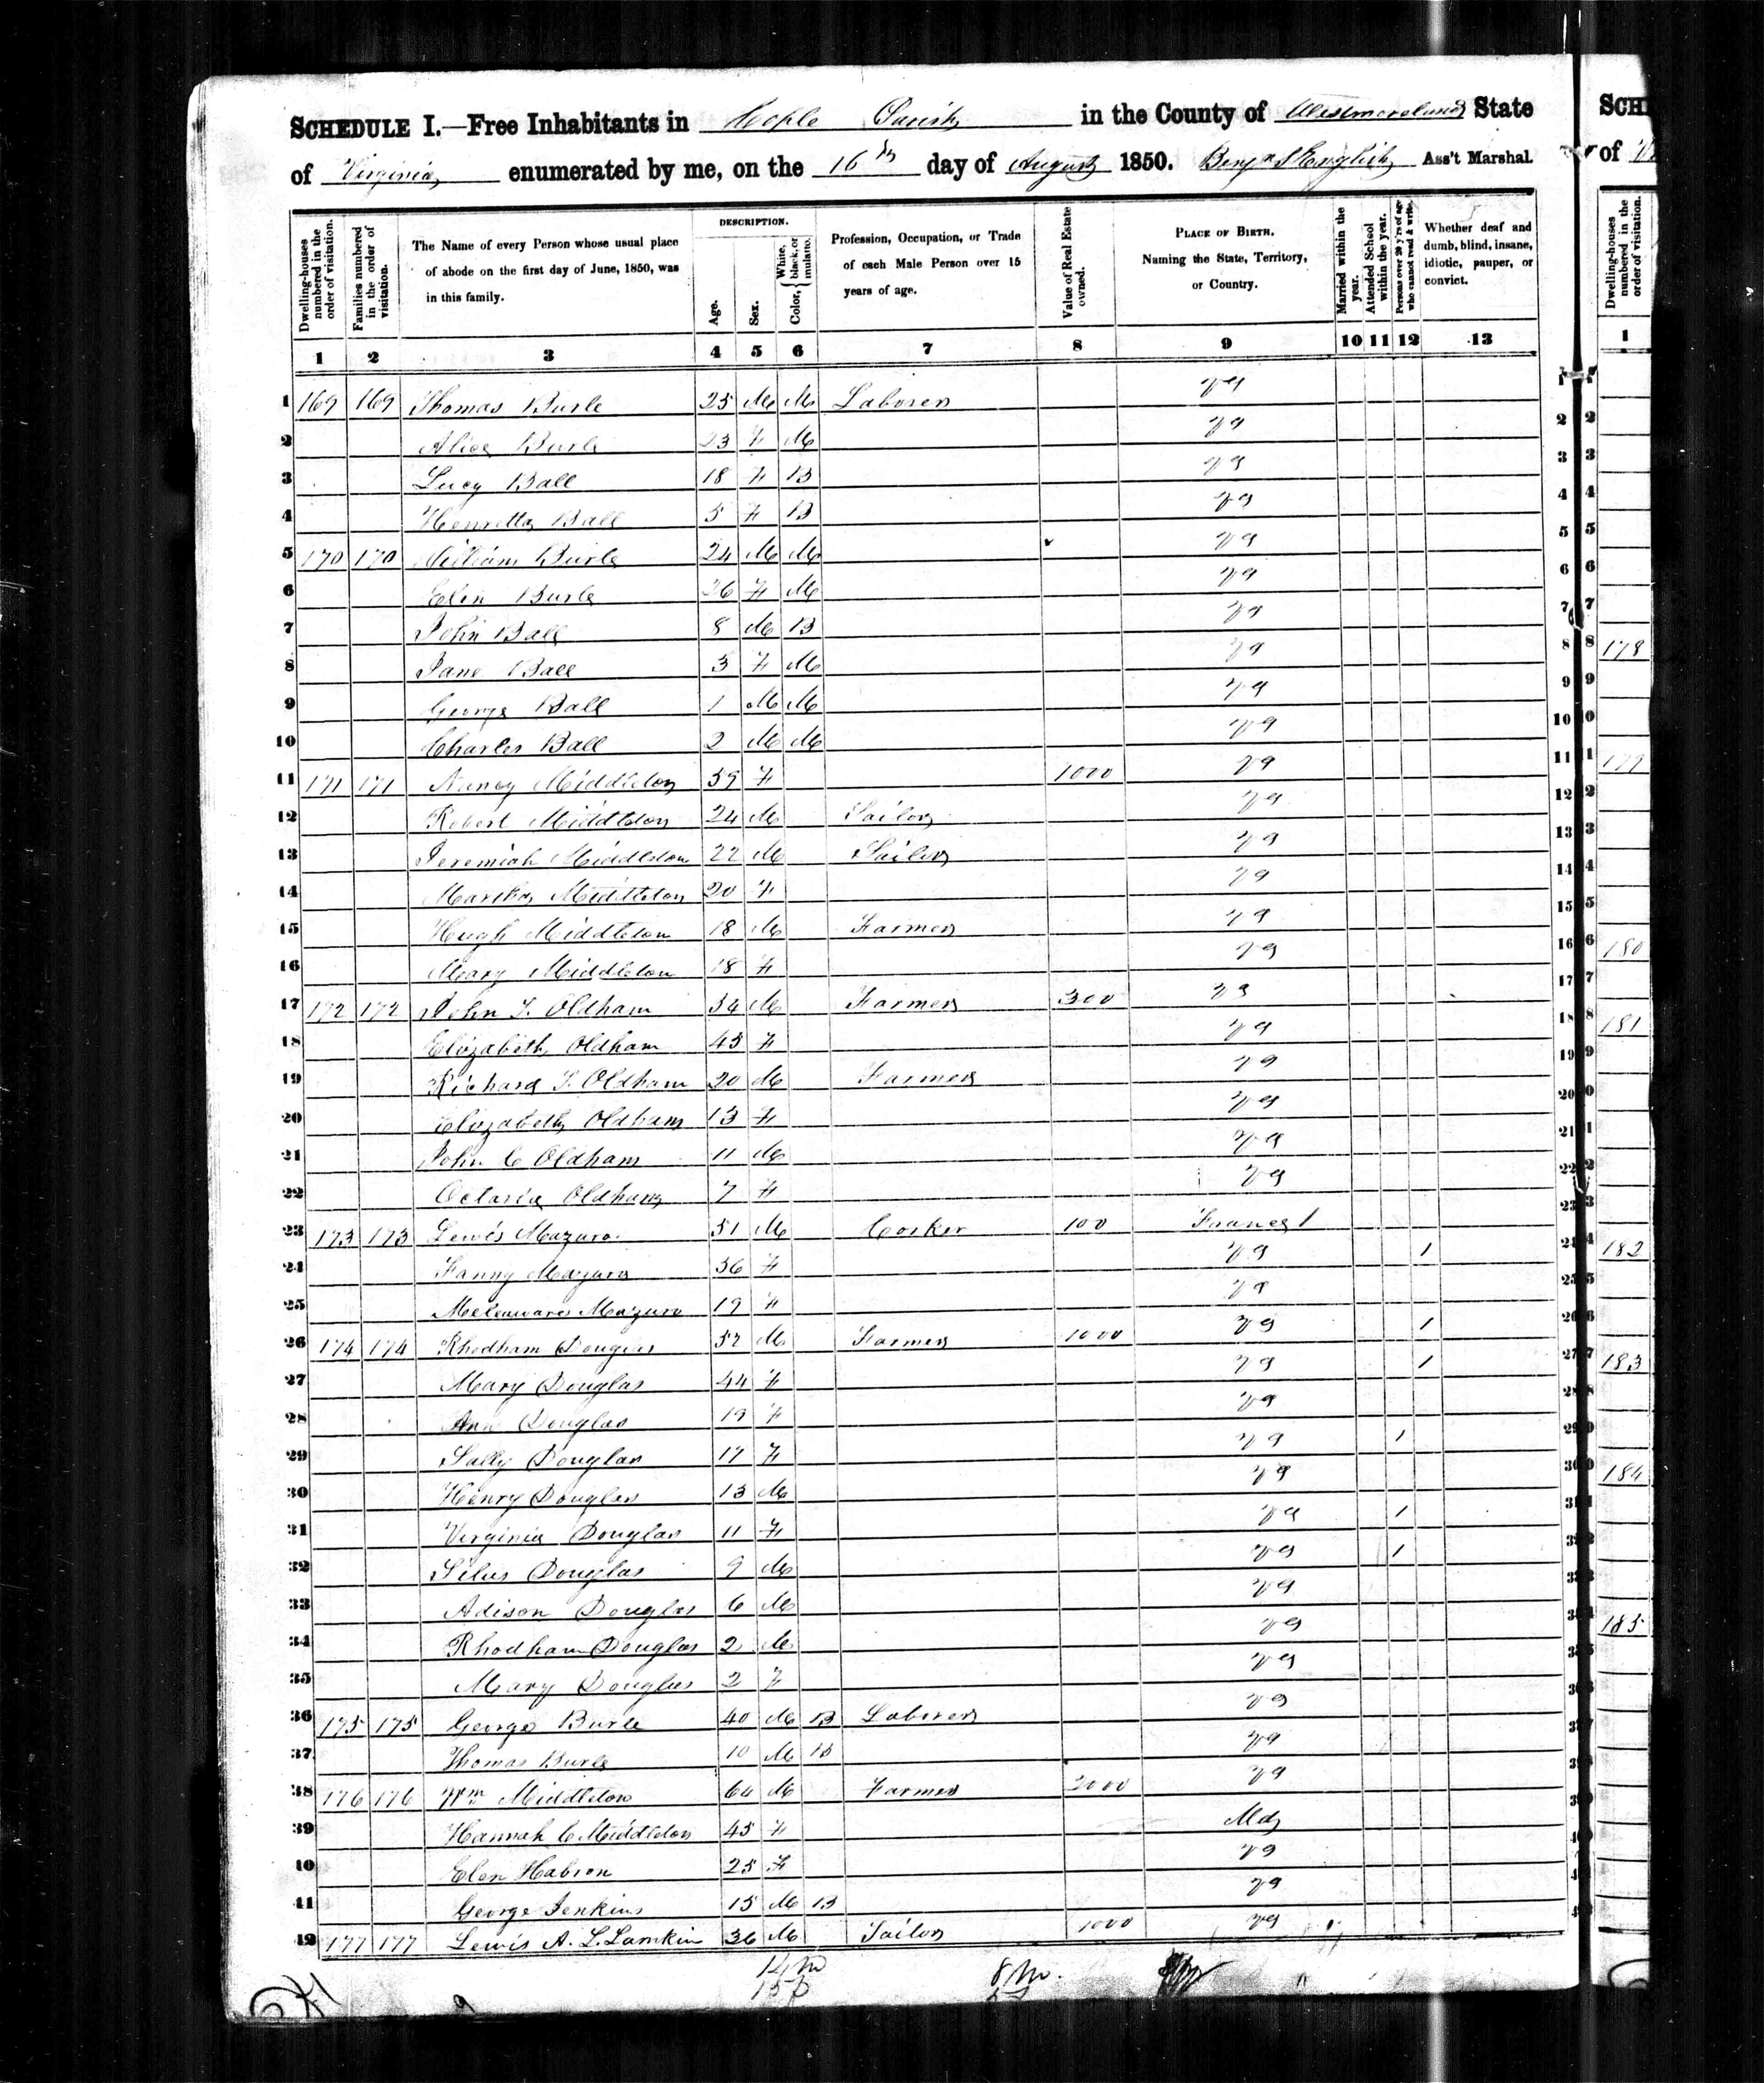 SCHEDULE I.—Free Inhabitants in Cople Parish in the County of Westmoreland State
of Virginia enumerated by me, on the 16th day of August 1850. Benj S English Ass't Marshal.
Dwelling-houses numbered in the order of visitation.
Families numbered in the order of visitation.
The Name of every Person whose usual place of abode on the first day of June, 1850, was in this family.
DESCRIPTION.
Age.
Sex.
Color, { White, black, or mulatto.
Profession, Occupation, or Trade of each Male Person over 15 years of age.
Value of Real Estate owned.
PLACE OF BIRTH. Naming the State, Territory, or Country.
Married within the year.
Attended School within the year.
Persons over 20 y'rs of age who cannot read & write.
Whether deaf and dumb, blind, insane, idiotic, pauper, or convict.
1 2 3 4 5 6 7 8 9 10 11 12 13
1 169 169 Thomas Burle 25 M M Laborer Va 1
2 Alice Burle 23 F M Va 2
3 Lucy Ball 18 F B Va 3
4 Henretta Ball 5 F B Va 4
5 170 170 William Burle 24 M M Va 5
6 Elen Burle 26 F M Va 6
7 John Ball 8 M B Va 7
8 Jane Ball 3 F M Va 8
9 George Ball 1 M M Va 9
10 Charles Ball 2 M M Va 10
11 171 171 Nancy Middleton 59 F 1000 Va 11
12 Robert Middleton 24 M Sailor Va 12
13 Jeremiah Middleton 22 M Sailor Va 13
14 Martha Middleton 20 F Va 14
15 Hugh Middleton 18 M Farmer Va 15
16 Mary Middleton 18 F Va 16
17 172 172 John T. Oldham 54 M Farmer 300 Va 17
18 Elizabeth Oldham 45 F Va 18
19 Richard T. Oldham 20 M Farmer Va 19
20 Elizabeth Oldham 13 F Va 20
21 John C Oldham 11 M Va 21
22 Octavia Oldham 7 F Va 22
23 173 173 Lewis Mazuro 51 M Corker 100 France 1 23
24 Fanny Mazuro 36 F Va 1 24
25 Mazuro 19 F Va 25
26 174 174 Rhodham Douglas 52 M Farmer 1000 Va 1 26
27 Mary Douglas 44 F Va 1 27
28 Ann Douglas 19 F Va 28
29 Sally Douglas 17 F Va 1 29
30 Henry Douglas 13 M Va 30
31 Virginia Douglas 11 F Va 1
32 Silus Douglas 9 M Va 1
33 Adison Douglas 6 M Va
34 Rhodham Douglas 2 M Va
35 Mary Douglas 2 F Va
36 175 175 George Burle 40 M B Laborer Va
37 Thomas Burle 10 M B Va
38 176 176 Wm Middleton 64 M Farmer 2000 Va
39 Hannah C Middleton 45 F Md
40 Elen Habron 25 F Va
41 George Jenkins 15 M B Va
42 177 177 Lewis A. L. Lamkin 36 M Tailor 1000 Va
14 m
15 f
8 m.
SCHE
of
Dwelling-houses numbered in the order of visitation.
1
2
3
4
5
6
7
8 178
9
11 179
16 180
18 181
182
183
184
185